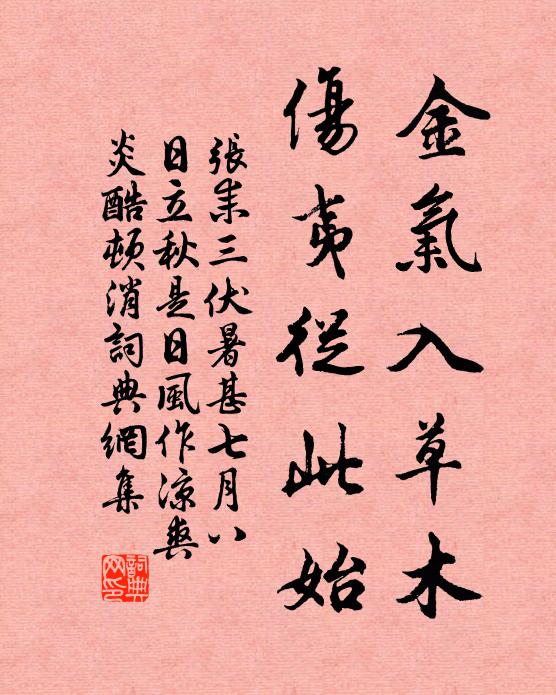 金氣入草木
傷夷從此始
張耒三伏暑甚七月八
日立秋是日風作涼爽
炎酷頓消詞典網集
詞典网印